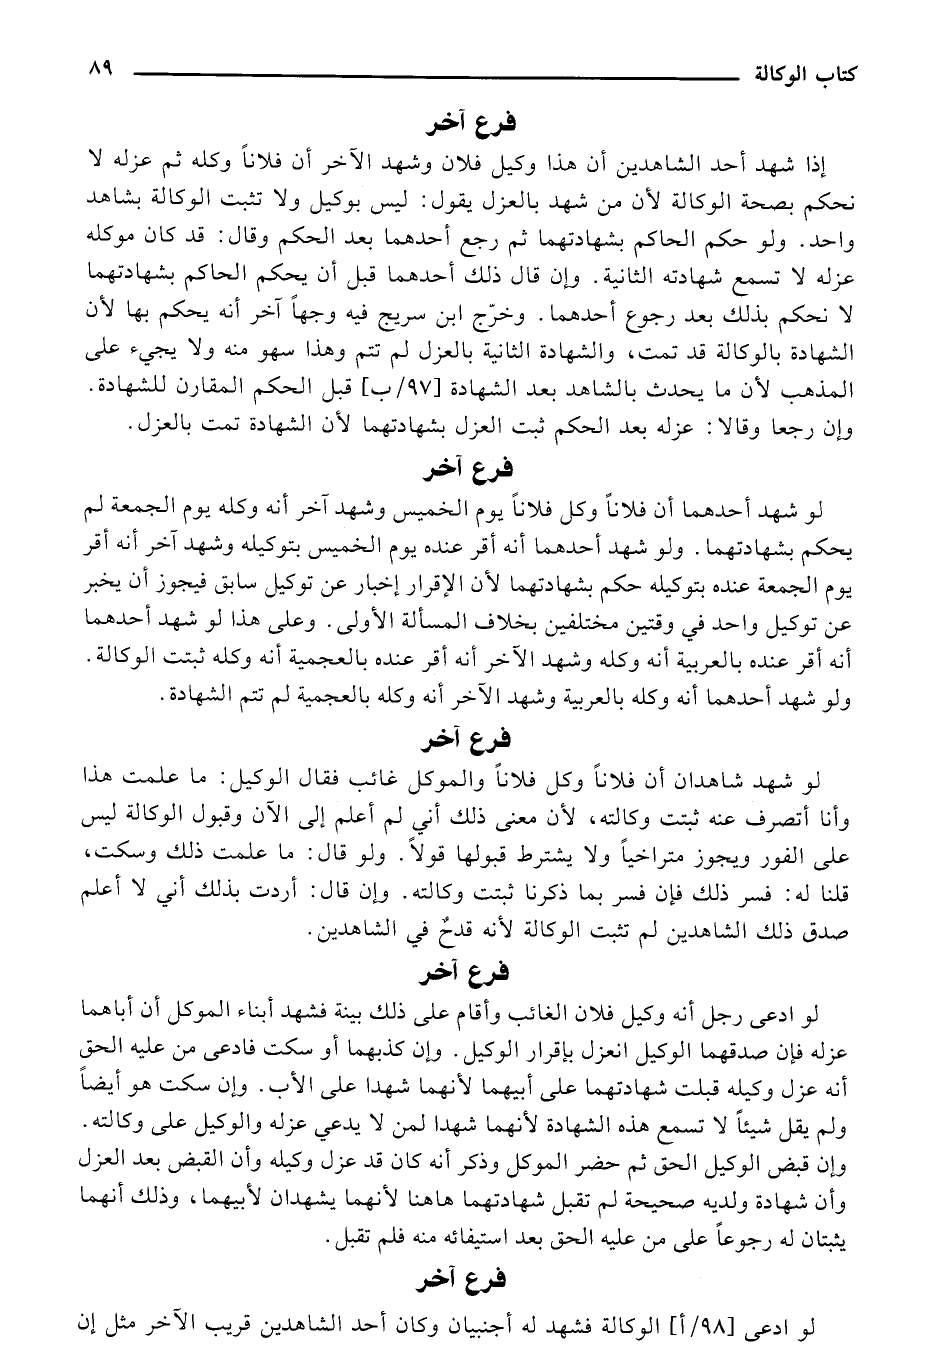 كتاب الوكالة ٨٩
فرع آخر
إذا شهد أحد الشاهدين أن هذا وكيل فلان وشهد الآخر أن فلاناً وكله ثم عزله لا
نحكم بصحة الوكالة لأن من شهد بالعزل يقول: ليس بوكيل ولا تثبت الوكالة بشاهد
واحد. ولو حكم الحاكم بشهادتهما ثم رجع أحدهما بعد الحكم وقال: قد كان موكله
عزله لا تسمع شهادته الثانية. وإن قال ذلك أحدهما قبل أن يحكم الحاكم بشهادتهما
لا نحكم بذلك بعد رجوع أحدهما. وخرّج ابن سريج فيه وجهاً آخر أنه يحكم بها لأن
الشهادة بالوكالة قد تمت، والشهادة الثانية بالعزل لم تتم وهذا سهو منه ولا يجيء على
المذهب لأن ما يحدث بالشاهد بعد الشهادة [٩٧/ب] قبل الحكم المقارن للشهادة.
وإن رجعا وقالا: عزله بعد الحكم ثبت العزل بشهادتهما لأن الشهادة تمت بالعزل.
فرع آخر
لو شهد أحدهما أن فلاناً وكل فلاناً يوم الخميس وشهد آخر أنه وكله يوم الجمعة لم
يحكم بشهادتهما. ولو شهد أحدهما أنه أقر عنده يوم الخميس بتوكيله وشهد آخر أنه أقر
يوم الجمعة عنده بتوكيله حكم بشهادتهما لأن الإقرار إخبار عن توكيل سابق فيجوز أن يخبر
عن توكيل واحد في وقتين مختلفين بخلاف المسألة الأولى. وعلى هذا لو شهد أحدهما
أنه أقر عنده بالعربية أنه وكله وشهد الآخر أنه أقر عنده بالعجمية أنه وكله ثبتت الوكالة.
ولو شهد أحدهما أنه وكله بالعربية وشهد الآخر أنه وكله بالعجمية لم تتم الشهادة.
فرع آخر
لو شهد شاهدان أن فلاناً وكل فلاناً والموكل غائب فقال الوكيل: ما علمت هذا
وأنا أتصرف عنه ثبتت وكالته، لأن معنى ذلك أني لم أعلم إلى الآن وقبول الوكالة ليس
على الفور ويجوز متراخياً ولا يشترط قبولها قولاً. ولو قال: ما علمت ذلك وسكت،
قلنا له: فسر ذلك فإن فسر بما ذكرنا ثبتت وكالته. وإن قال: أردت بذلك أني لا أعلم
صدق ذلك الشاهدين لم تثبت الوكالة لأنه قدحٌ في الشاهدين.
فرع آخر
لو ادعى رجل أنه وكيل فلان الغائب وأقام على ذلك بينة فشهد أبناء الموكل أن أباهما
عزله فإن صدقهما الوكيل انعزل بإقرار الوكيل. وإن كذبهما أو سكت فادعى من عليه الحق
أنه عزل وكيله قبلت شهادتهما على أبيهما لأنهما شهدا على الأب. وإن سكت هو أيضاً
ولم يقل شيئاً لا تسمع هذه الشهادة لأنهما شهدا لمن لا يدعي عزله والوكيل على وكالته.
وإن قبض الوكيل الحق ثم حضر الموكل وذكر أنه كان قد عزل وكيله وأن القبض بعد العزل
وأن شهادة ولديه صحيحة لم تقبل شهادتهما هاهنا لأنهما يشهدان لأبيهما، وذلك أنهما
يثبتان له رجوعاً على من عليه الحق بعد استيفائه منه فلم تقبل.
فرع آخر
لو ادعى [٩٨/أ] الوكالة فشهد له أجنبيان وكان أحد الشاهدين قريب الآخر مثل إن